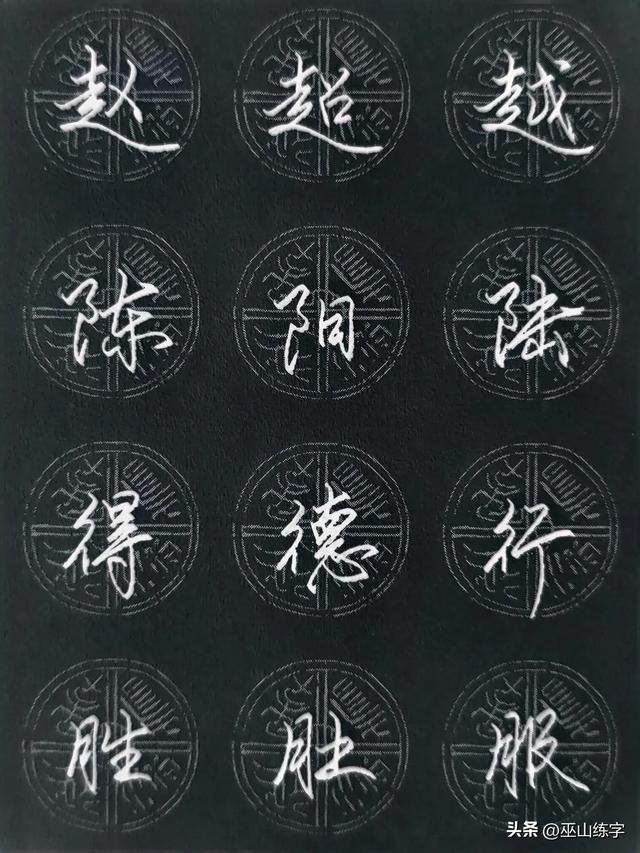 赵超越
陈阳陆
得德行
胜肚服
头条 @巫山练字